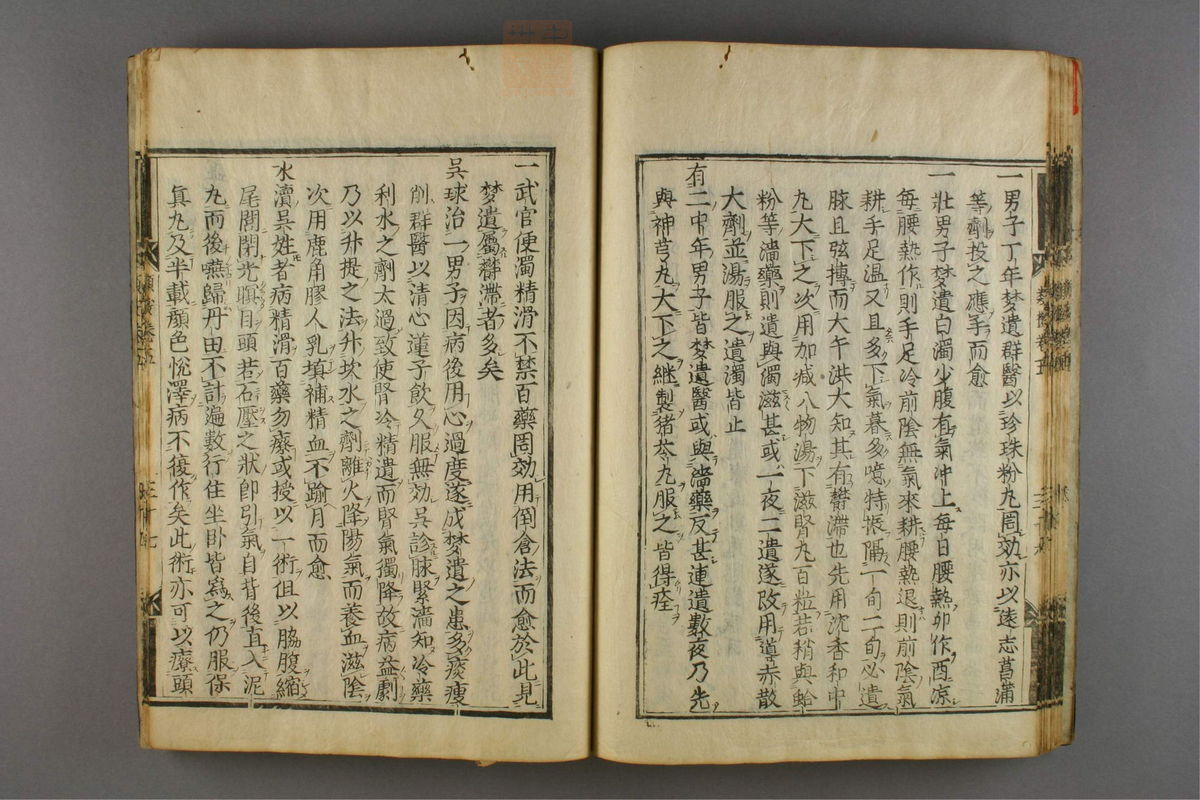 一男子丁年梦遺群醫以珍珠粉丸罔効亦以遠志菖蒲
等劑投之應手而愈
一壯男子梦遺白濁少腹有氣冲上每日腰熱卯作酉凉
每腰熱作則手足冷前陰無氣來耕腰熱退則前陰氣
耕手足温又且多下氣暮多噫特振隔一旬二旬必遺
脉且弦搏而大午洪大知其有欝滯也先用沈香和中
丸大下之次用加减八物湯下滋腎丸百粒若稍與蛤
粉等濇藥則遺與濁滋甚或一夜二遺遂改用導赤散
大劑並湯服之遺濁皆止
有二中年男子皆梦遺醫或與濇藥反甚連遺數夜乃先
與神芎丸大下之継製猪苓丸服之皆得痊
一武官便濁精滑不禁百藥罔効用倒倉法而愈於此見
梦遺屬欝滯者多矣
呉球治一男子因病後用心過度遂成梦遺之患多痰瘦
削群醫以清心蓮子飲久服無効呉診脉緊濇知冷藥
利水之劑太過致使腎冷精遺而腎氣獨降故病益劇
乃以升提之法升坎水之劑離火降陽氣而養血滋陰
次用鹿角膠人乳填補精血不踰月而愈
水瀆呉姓者病精滑百藥勿療或授以一術但以脇腹縮
尾閭閉光瞑目頭若石壓之狀卽引氣自背後直入泥
丸而後嚥歸丹田不計遍數行住坐卧皆爲之仍服保
眞丸及半載顔色悅澤病不復作矣此術亦可以療頭